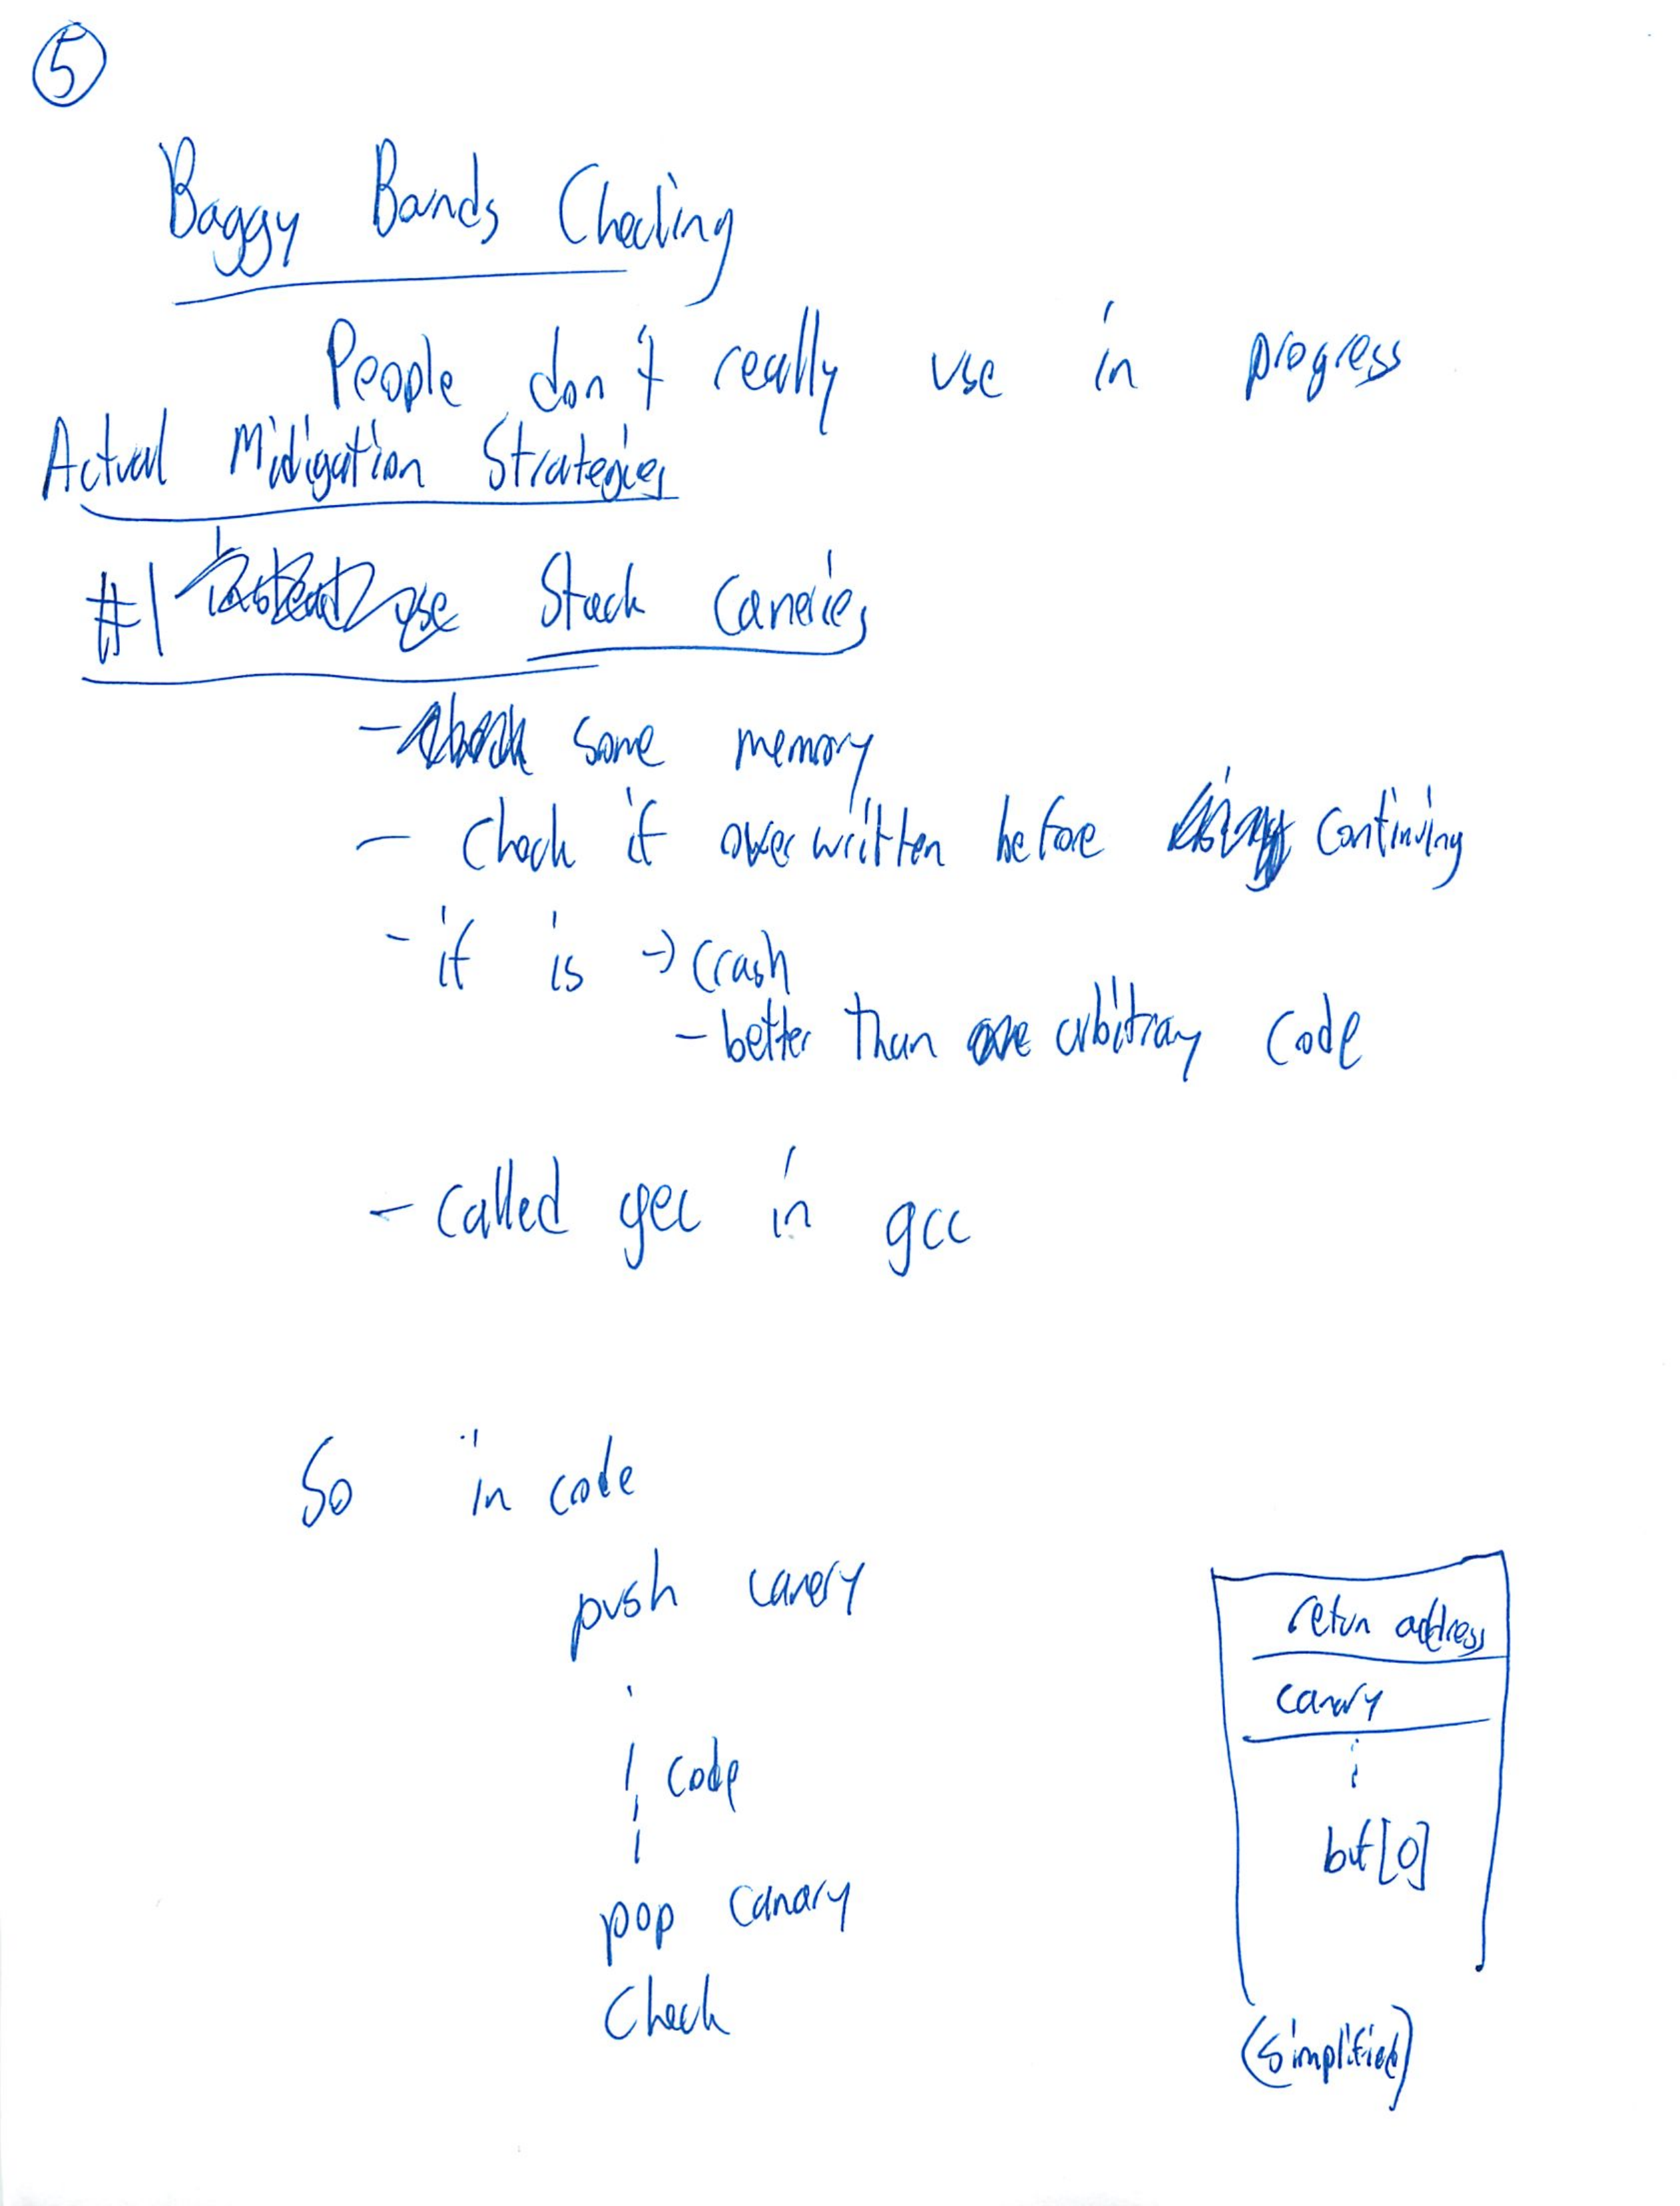 5
Baggy Bands Checking
People don't really use in progress
Actual Midigation Strategies
#1 Stack Canaries
- some memory
- Check if overwritten before continuing
- if is → crash
- better than arbitray code
- called gec in gcc
So in code
push canery
code
pop canary
Check
return address
canary
buf[0]
(simplified)